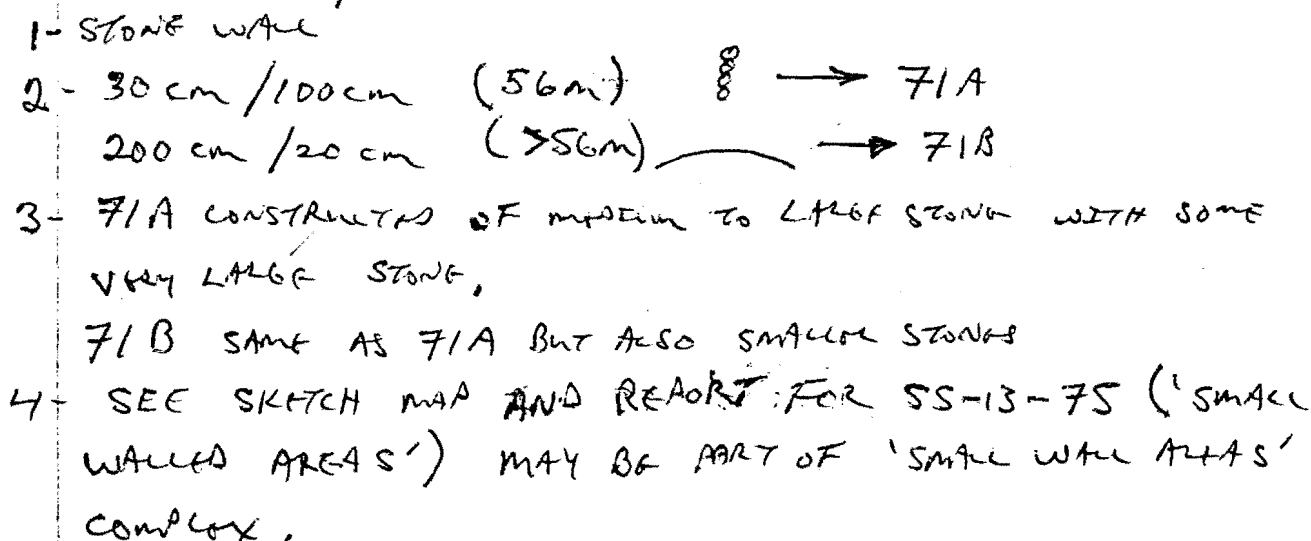 1- STONE WALL
2- 30 cm/100cm (56m) → 71A
200 cm/20 cm (>56m) → 71B
3- 71A CONSTRUCTED OF MEDIUM TO LARGE STONE WITH SOME
VERY LARGE STONE.
71B SAME AS 71A BUT ALSO SMALLER STONES
4- SEE SKETCH MAP AND REPORT FOR SS-13-75 ('SMALL
WALLED AREAS') MAY BE PART OF 'SMALL WALL AREAS'
COMPLEX.